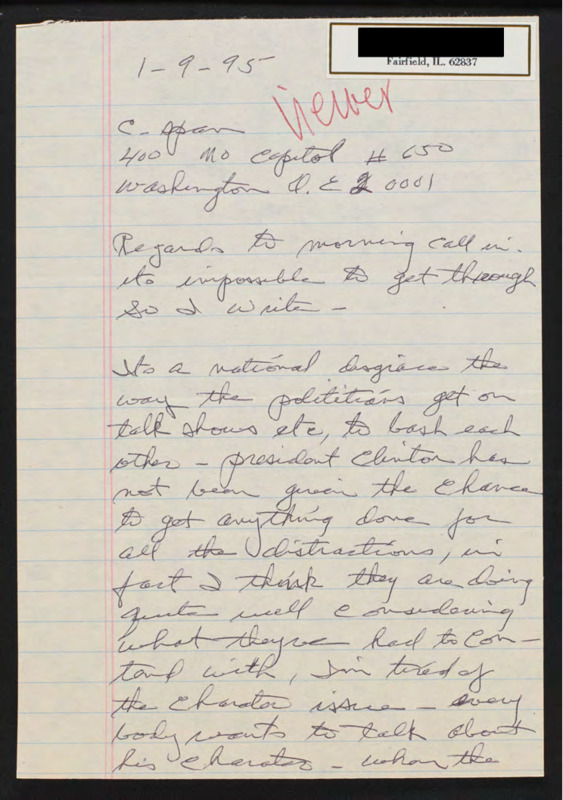 Fairfield, IL. 62837
1-9-95
Viewer
C-Span
400 No Capitol # 650
Washington D.C 20001
Regards to morning call in.
its impossible to get through
so I write -
Its a national disgrace the
way the polititians get on
talk shows etc, to bash each
other - president Clinton has
not been given the chance
to get anything done for
all the distractions, in
fact I think they are doing
quite well considering
what theyve had to con-
tend with, I'm tired of
the charater issue - every
body wants to talk about
his charater - when the